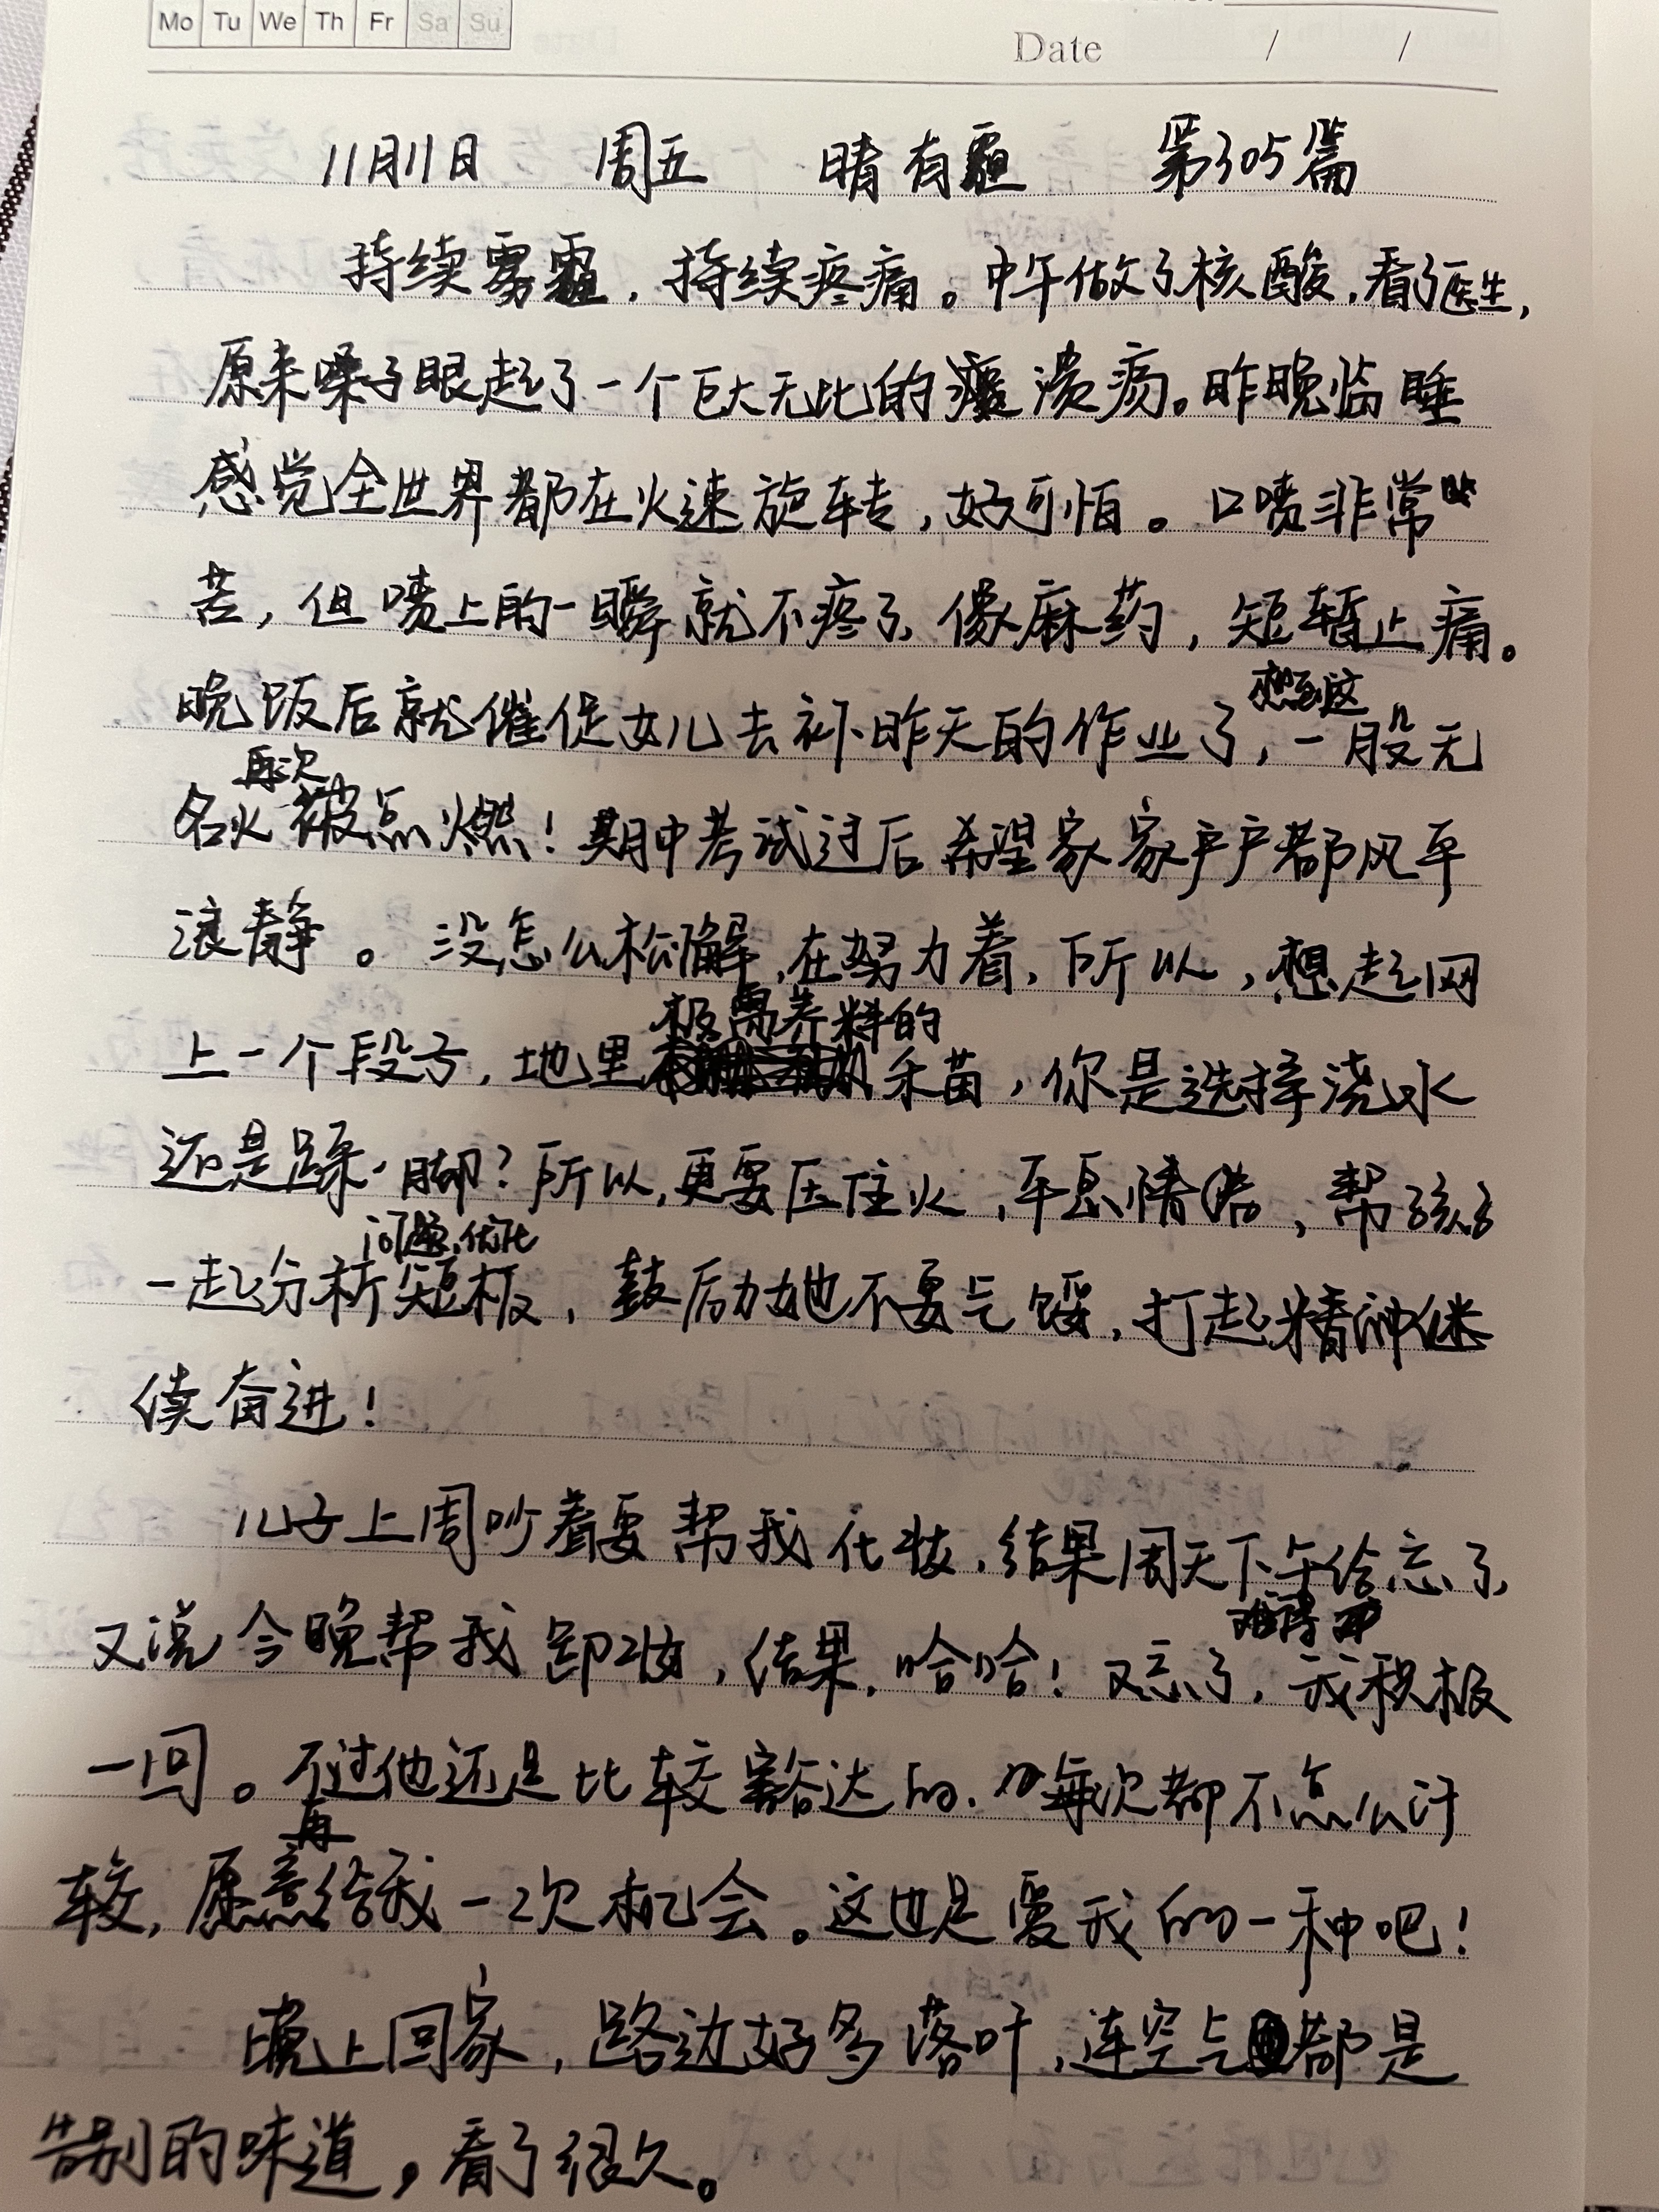 Mo Tu We Th Fr Sa Su
Date / /
11月11日 周五 晴有霾 第305篇
持续雾霾，持续疼痛。中午做了核酸，看了医生，
原来嗓子眼起了一个巨大无比的溃疡。昨晚临睡
感觉全世界都在火速旋转，好可怕。口喷非常
苦，但喷上的一瞬就不疼了，像麻药，短暂止痛。
晚饭后就催促女儿去补昨天的作业了，想到这一股无
名火再次被点燃！期中考试过后希望家家户户都风平
浪静。没怎么松懈，在努力着，所以，想起网
上一个段子，地里极需养料的禾苗，你是选择浇水
还是踩一脚？所以，更要压住火，平息情绪，帮孩子
一起分析问题、优化短板，鼓励她不要气馁，打起精神继
续奋进！
儿子上周吵着要帮我化妆，结果周天下午给忘了，
又说今晚帮我卸妆，结果，哈哈！又忘了，难得我积极
一回。不过他还是比较豁达的，每次都不怎么计
较，愿意再给我一次机会。这也是爱我的一种吧！
晚上回家，路边好多落叶，连空气都是
告别的味道，看了很久。